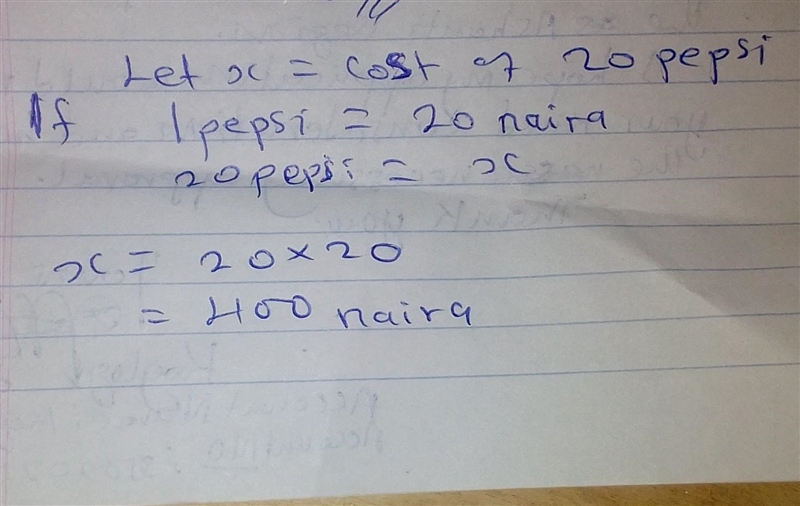 Let x = cost of 20 pepsi
If 1 pepsi = 20 naira
20 pepsi = x
x = 20 × 20
= 400 naira